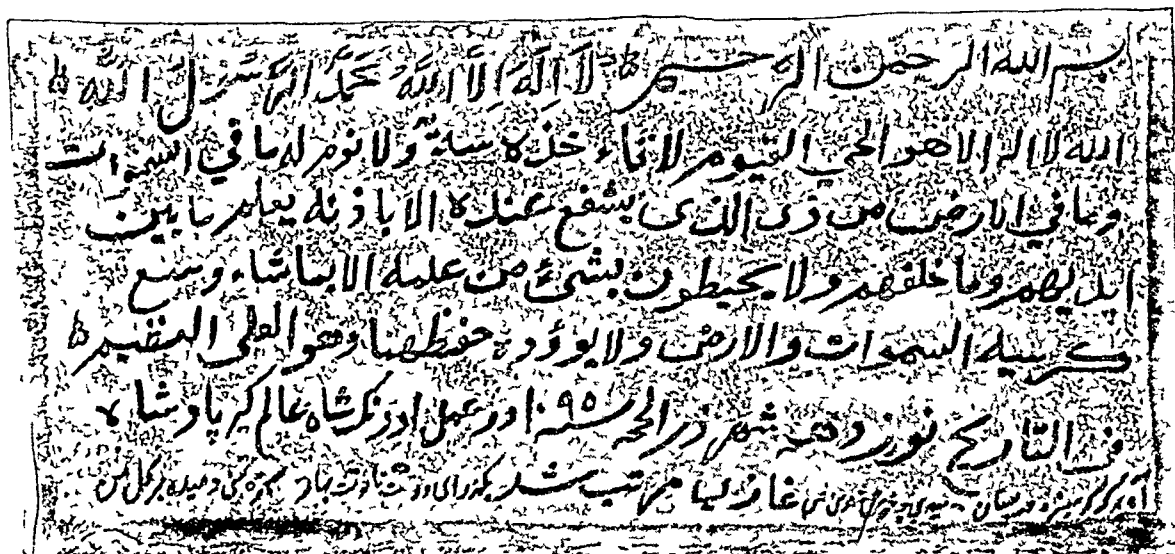 بسم الله الرحمن الرحیم لا اله الا الله محمد الرسول الله
الله لا اله الا هو الحی القیوم لا تاء خذه سنة ولا نوم له ما في السموات
وما في الارض من ذی الذی یشفع عنده الا باذنه یعلم ما بین
ایدیهم وما خلفهم ولا یحیطون بشئ من علمه الا بما شاء وسع
کرسیه السموات والارض ولا یوؤده حفظهما وهو العلی العظیم
فی التاریخ نوزدهم شهر ذی الحجه سنه ۱۰۹۵ در عمل اورنکشاه عالم کیر پادشاه
مرتب شد